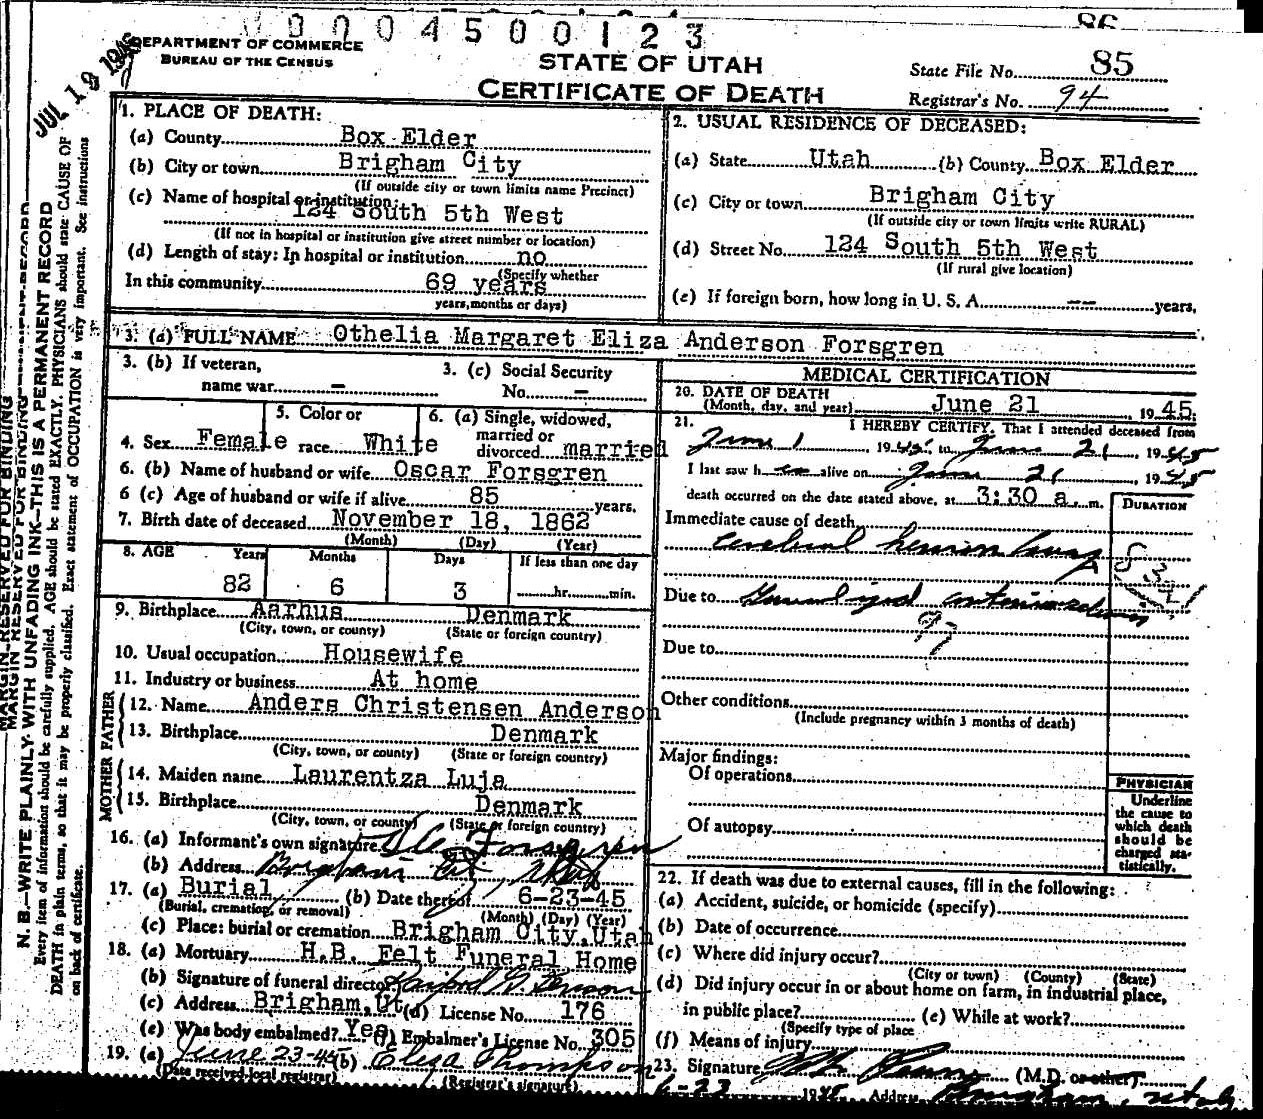 0004500123
86
JUL 19 1945
DEPARTMENT OF COMMERCE
BUREAU OF THE CENSUS
STATE OF UTAH
CERTIFICATE OF DEATH
State File No. 85
Registrar's No. 94
1. PLACE OF DEATH:
(a) County Box Elder
(b) City or town Brigham City
(If outside city or town limits name Precinct)
(c) Name of hospital or institution:
124 South 5th West
(If not in hospital or institution give street number or location)
(d) Length of stay: In hospital or institution no
(Specify whether
In this community 69 years
years, months or days)
2. USUAL RESIDENCE OF DECEASED:
(a) State Utah (b) County Box Elder
(c) City or town Brigham City
(If outside city or town limits write RURAL)
(d) Street No. 124 South 5th West
(If rural give location)
(e) If foreign born, how long in U. S. A. -- years.
3. (a) FULL NAME Othelia Margaret Eliza Anderson Forsgren
3. (b) If veteran,
name war –
3. (c) Social Security
No. –
4. Sex Female
5. Color or
race White
6. (a) Single, widowed,
married or
divorced married
6. (b) Name of husband or wife Oscar Forsgren
6 (c) Age of husband or wife if alive 85 years.
7. Birth date of deceased November 18, 1862
(Month) (Day) (Year)
8. AGE Years Months Days If less than one day
82 6 3 hr. min.
9. Birthplace Aarhus Denmark
(City, town, or county) (State or foreign country)
10. Usual occupation Housewife
11. Industry or business At home
FATHER
12. Name Anders Christensen Anderson
13. Birthplace Denmark
(City, town, or county) (State or foreign country)
MOTHER
14. Maiden name Laurentza Luja
15. Birthplace Denmark
(City, town, or county) (State or foreign country)
16. (a) Informant's own signature Forsgren
(b) Address Brigham City, Utah
17. (a) Burial (b) Date thereof 6-23-45
(Burial, cremation, or removal) (Month) (Day) (Year)
(c) Place: burial or cremation Brigham City, Utah
18. (a) Mortuary H.B. Felt Funeral Home
(b) Signature of funeral director
(c) Address Brigham, Ut (d) License No. 176
(e) Was body embalmed? Yes (f) Embalmer's License No. 305
19. (a) June 23-45 (b) Eliza Thompson
(Date received local registrar) (Registrar's signature)
MEDICAL CERTIFICATION
20. DATE OF DEATH
(Month, day, and year) June 21, 1945.
21. I HEREBY CERTIFY, That I attended deceased from
June 1 1945, to June 21, 1945
I last saw h er alive on June 21, 1945
death occurred on the date stated above, at 3:30 a. m.
DURATION
Immediate cause of death
Cerebral hemorrhage
Due to Generalized arteriosclerosis
97
Due to
Other conditions
(Include pregnancy within 3 months of death)
Major findings:
Of operations
Of autopsy
PHYSICIAN
Underline
the cause to
which death
should be
charged sta-
tistically.
22. If death was due to external causes, fill in the following:
(a) Accident, suicide, or homicide (specify)
(b) Date of occurrence
(c) Where did injury occur?
(City or town) (County) (State)
(d) Did injury occur in or about home on farm, in industrial place,
in public place? (e) While at work?
(Specify type of place
(f) Means of injury
23. Signature (M.D. or other)
6-23 1945 Address Brigham, Utah
MARGIN RESERVED FOR BINDING
MARGIN RESERVED FOR BINDING
N. B.—WRITE PLAINLY WITH UNFADING INK—THIS IS A PERMANENT RECORD
Every item of information should be carefully supplied. AGE should be stated EXACTLY. PHYSICIANS should state CAUSE OF
DEATH in plain terms, so that it may be properly classified. Exact statement of OCCUPATION is very important. See instructions
on back of certificate.